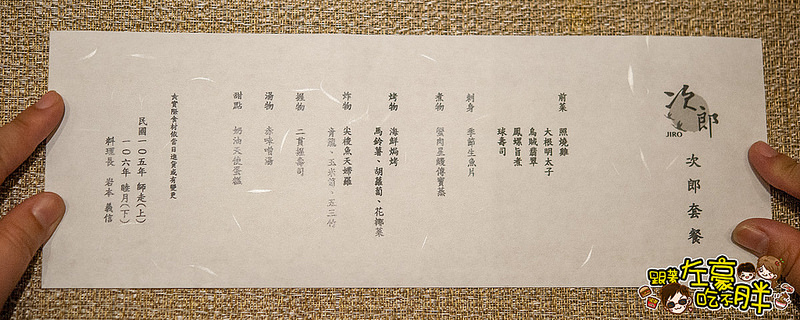 次郎
JIRO
次郎套餐
前菜 照燒雞
大根明太子
烏賊翡翠
鳳螺旨煮
球壽司
刺身 季節生魚片
煮物 蟹肉星鰻傳寶蒸
烤物 海鮮焗烤
馬鈴薯、胡蘿蔔、花椰菜
炸物 尖梭魚天婦羅
青龍、玉米筍、五三竹
握物 二貫握壽司
湯物 赤味噌湯
甜點 奶油天使蛋糕
實際食材依當日進貨或有變更
民國一0五年 師走(上)
一0六年 睦月(下)
料理長 岩本 義信
跟著左豪吃不胖